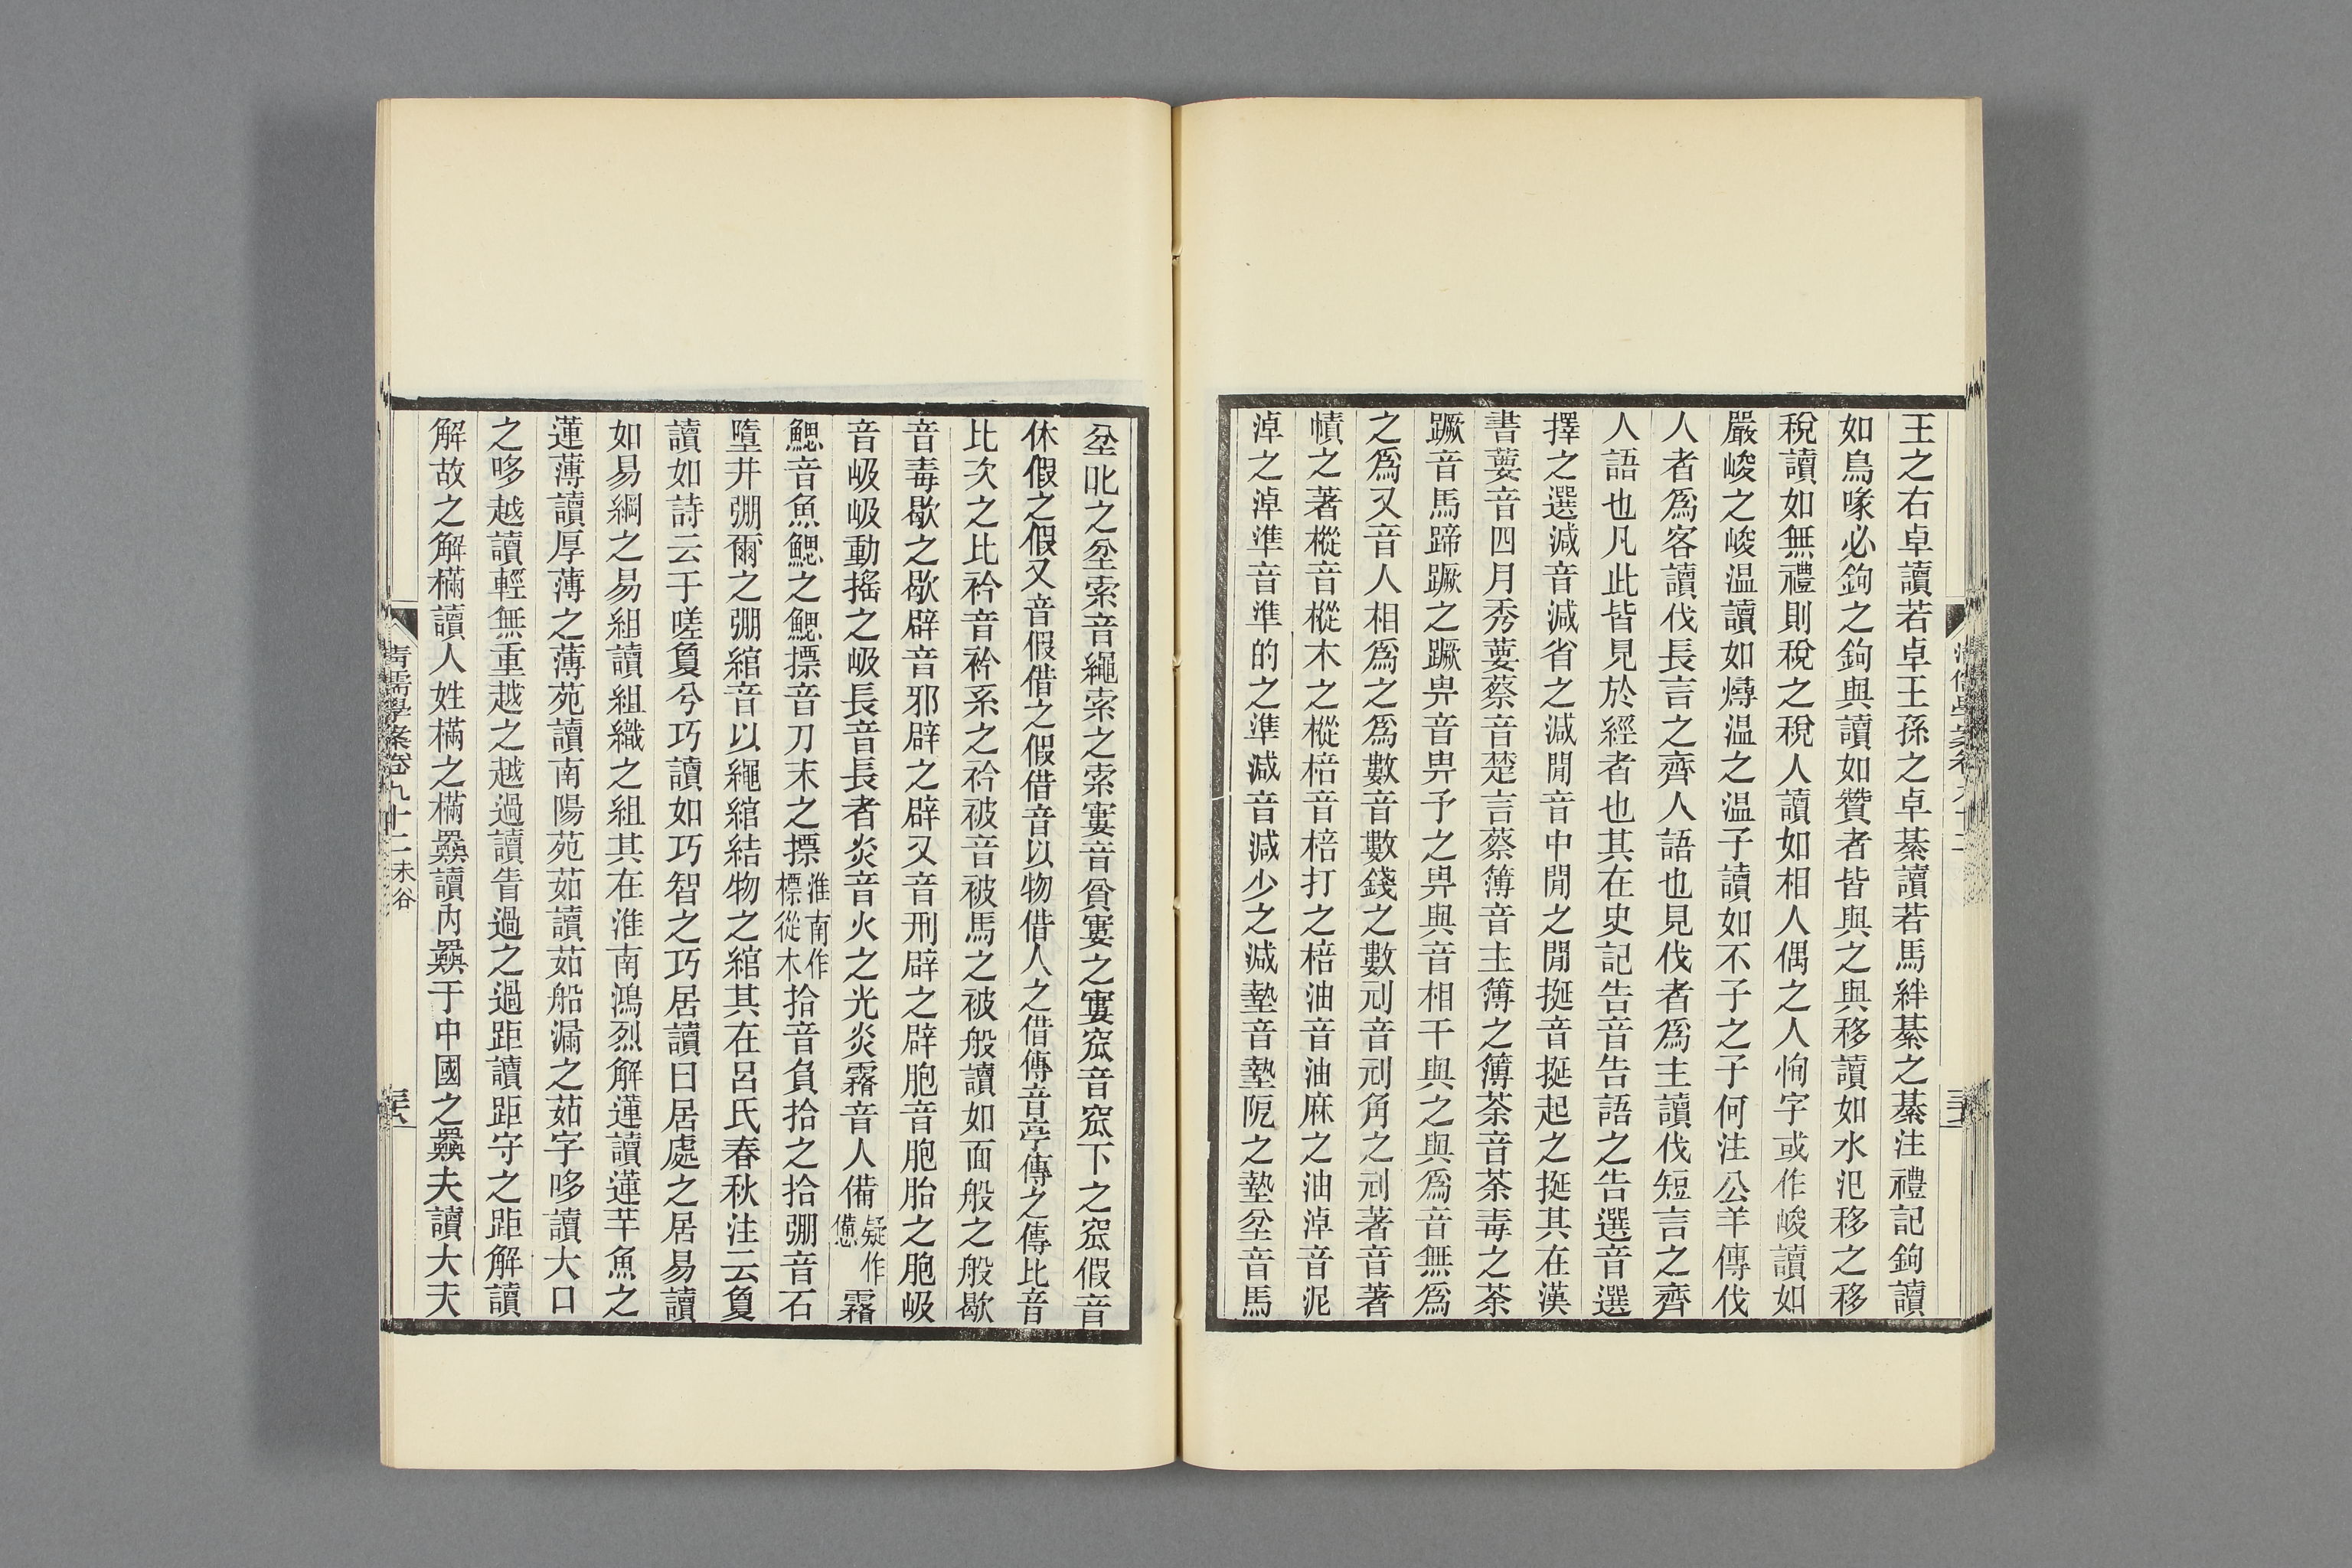 王之右卓讀若卓王孫之卓綦讀若馬絆綦之綦注禮記鉤讀
如鳥喙必鉤之鉤與讀如贊者皆與之與移讀如水汜移之移
稅讀如無禮則稅之稅人讀如相人偶之人恂字或作峻讀如
嚴峻之峻温讀如燖温之温子讀如不子之子何注公羊傳伐
人者爲客讀伐長言之齊人語也見伐者爲主讀伐短言之齊
人語也凡此皆見於經者也其在史記告音告語之告選音選
擇之選減音減省之減閒音中閒之閒挻音挻起之挻其在漢
書葽音四月秀葽蔡音楚言蔡簿音主簿之簿荼音荼毒之荼
蹶音馬蹄蹶之蹶畀音畀予之畀與音相干與之與爲音無爲
之爲又音人相爲之爲數音數錢之數刓音刓角之刓著音著
幘之著樅音樅木之樅棓音棓打之棓油音油麻之油淖音泥
淖之淖準音準的之準減音減少之減墊音墊阸之墊坌音馬
坌叱之坌索音繩索之索寠音貧寠之寠窊音窊下之窊假音
休假之假又音假借之假借音以物借人之借傳音亭傳之傳比音
比次之比衿音衿系之衿被音被馬之被般讀如面般之般歇
音毒歇之歇辟音邪辟之辟又音刑辟之辟胞音胞胎之胞岋
音岋岋動搖之岋長音長者炎音火之光炎霿音人備疑作㒆霿
鰓音魚鰓之鰓摽音刀末之摽淮南作標從木拾音負拾之拾弸音石
墮井弸爾之弸綰音以繩綰結物之綰其在呂氏春秋注云夐
讀如詩云于嗟夐兮巧讀如巧智之巧居讀曰居處之居易讀
如易綱之易組讀組織之組其在淮南鴻烈解蓮讀蓮芊魚之
蓮薄讀厚薄之薄苑讀南陽苑茹讀茹船漏之茹字哆讀大口
之哆越讀輕無重越之越過讀眚過之過距讀距守之距解讀
解故之解樠讀人姓樠之樠奰讀內奰于中國之奰夫讀大夫
清儒學案卷九十二 未谷